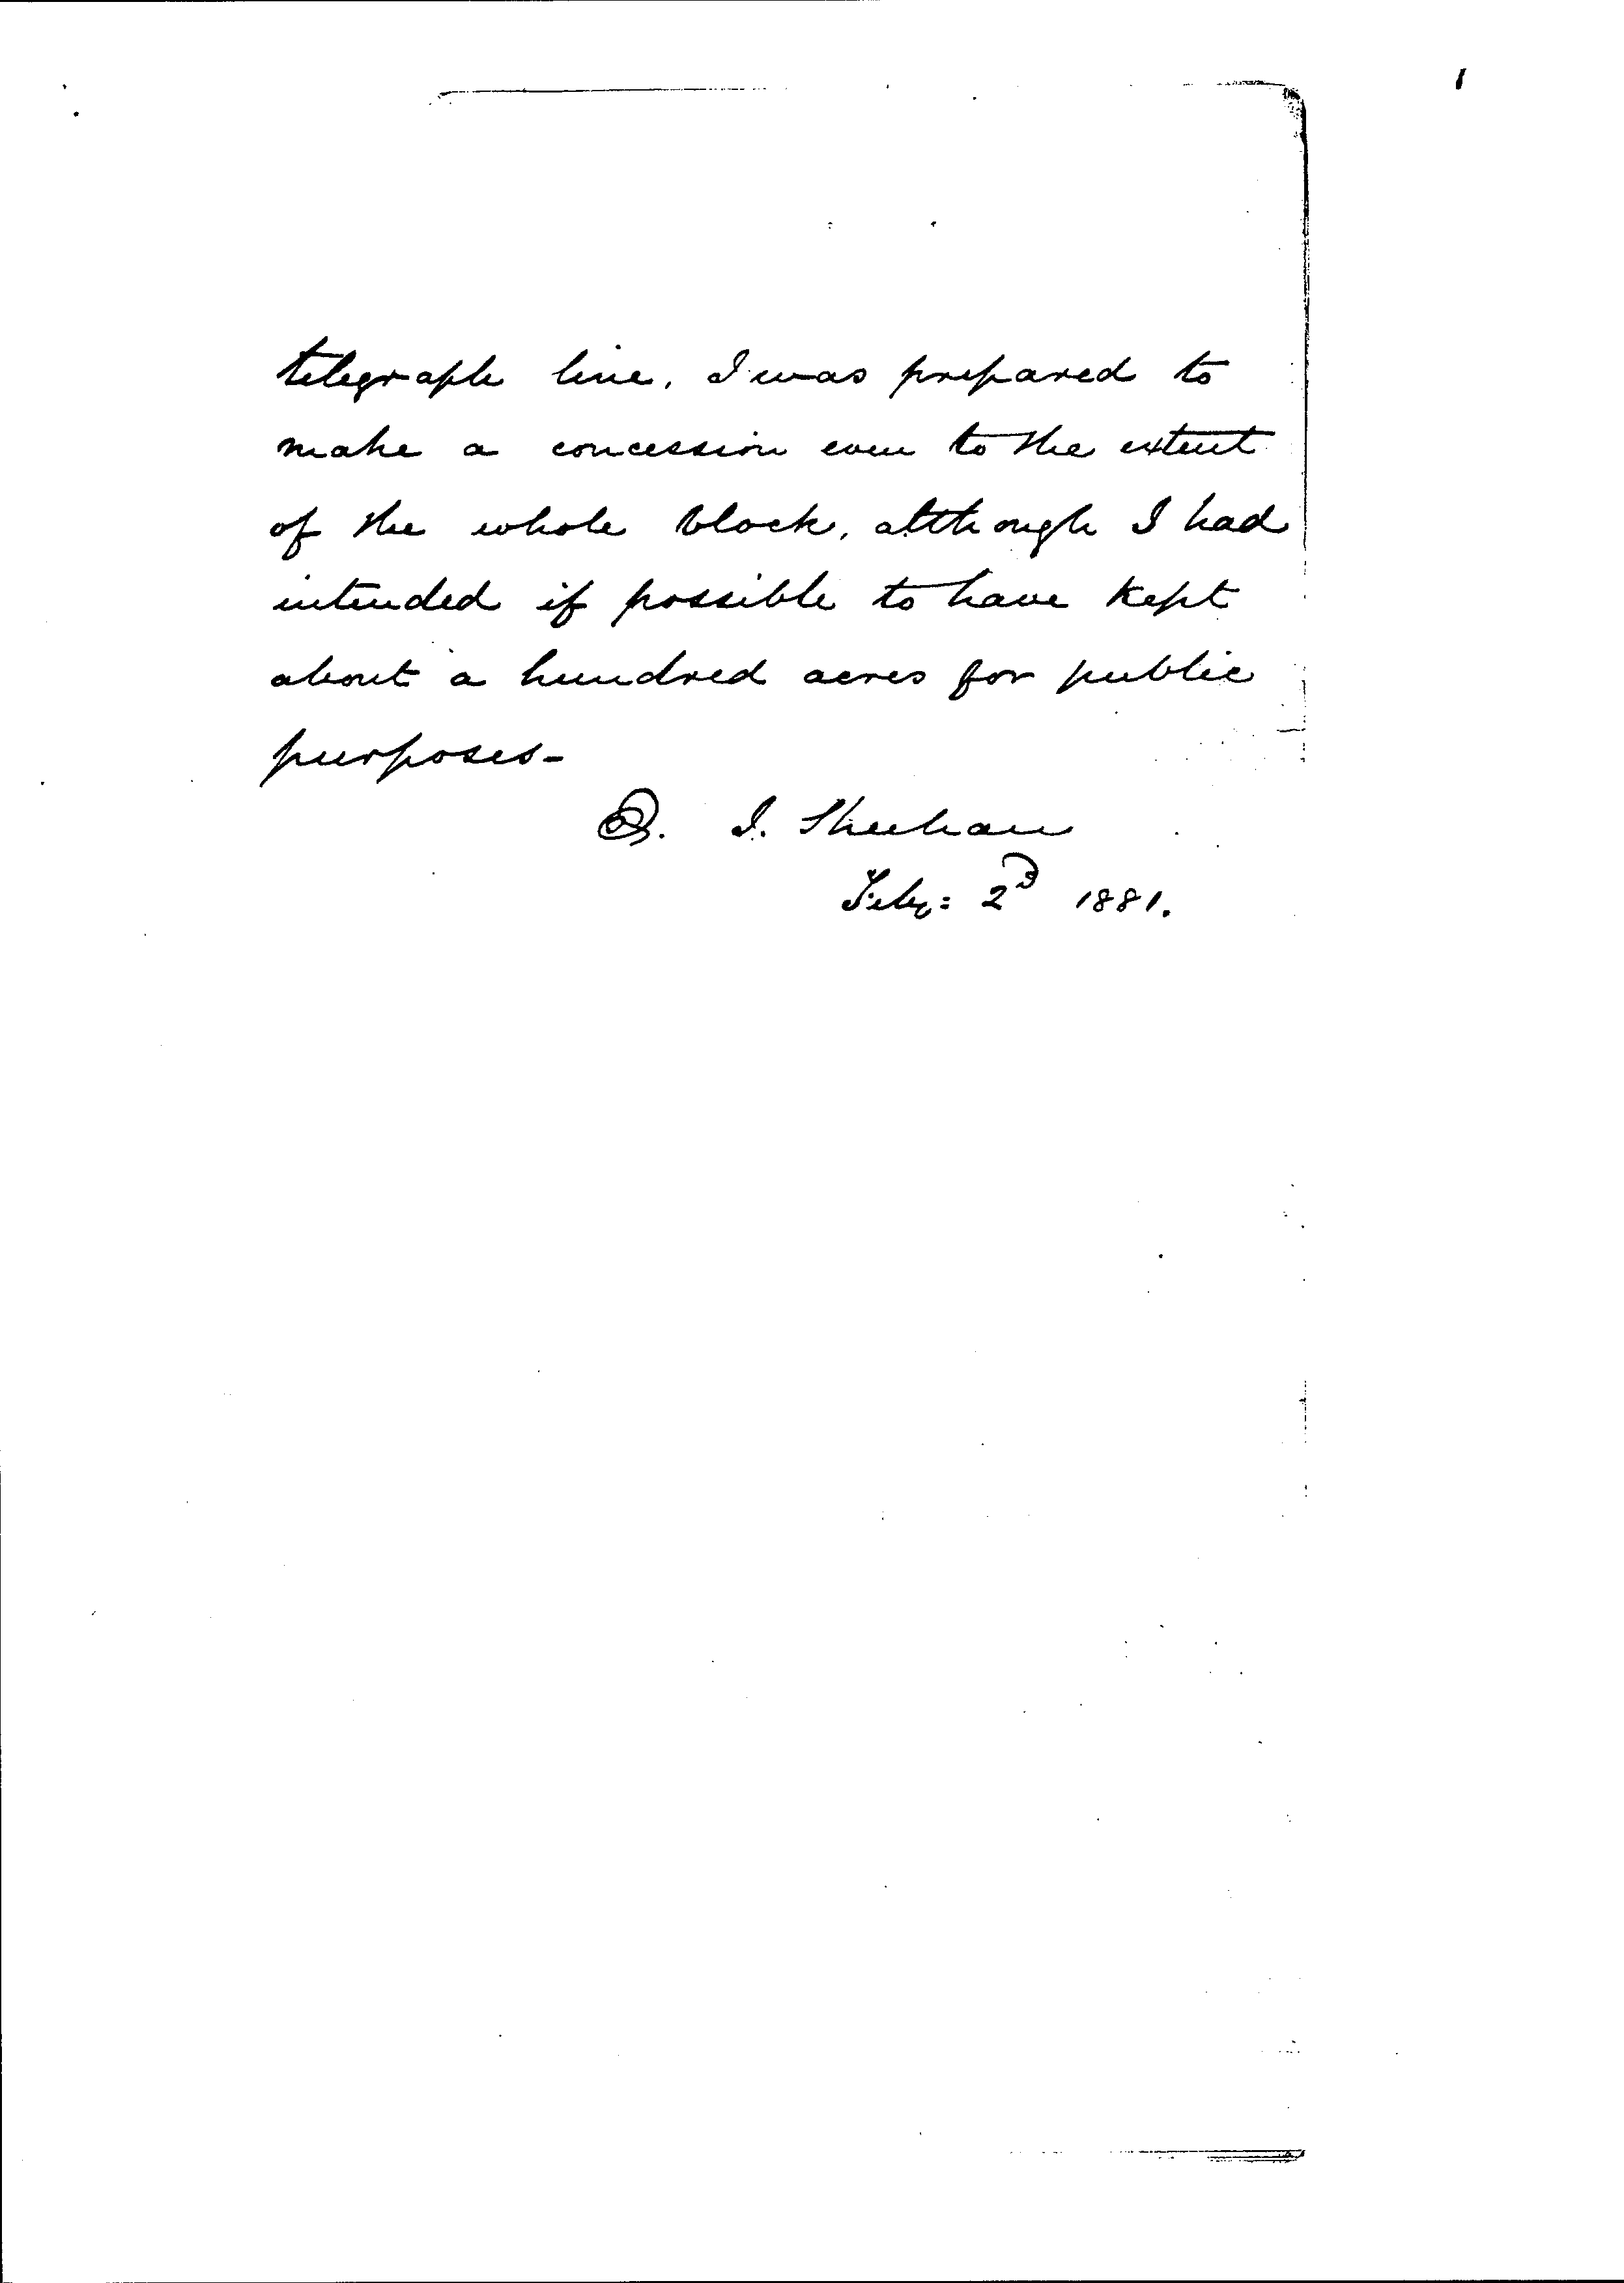 telegraph line, I was prepared to
make a concession even to the extent
of the whole block, although I had
intended if possible to have kept
about a hundred acres for public
purposes-
I. Sheehan
Feby: 2d 1881.